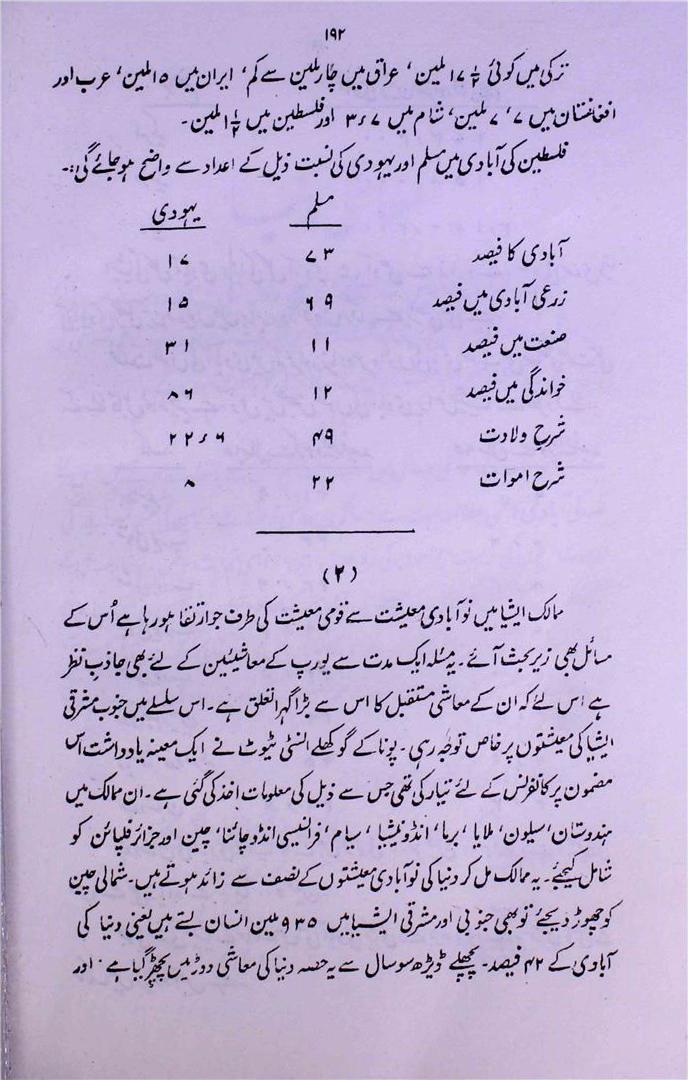 ۱۹۲
ترکی میں کوئی ۱۷ ۱/۲ ملین، عراق میں چار ملین سے کم، ایران میں ۱۵ ملین، عرب اور
افغانستان میں ۷، ۷ ملین، شام میں ۳٫۷ اور فلسطین میں ۱ ۱/۲ ملین۔
فلسطین کی آبادی میں مسلم اور یہودی کی نسبت ذیل کے اعداد سے واضح ہو جائے گی:۔
مسلم یہودی
آبادی کا فیصد ۷۳ ۱۷
زرعی آبادی میں فیصد ۶۹ ۱۵
صنعت میں فیصد ۱۱ ۳۱
خواندگی میں فیصد ۱۲ ۸۶
شرح ولادت ۴۹ ۲۲٫۶
شرح اموات ۲۲ ۸
(۲)
ممالک ایشیا میں نو آبادی معیشت سے قومی معیشت کی طرف جو ارتقا ہو رہا ہے اُس کے
مسائل بھی زیر بحث آئے۔ یہ مسئلہ ایک مدت سے یورپ کے معاشیئین کے لئے بھی جاذب نظر
ہے اس لئے کہ ان کے معاشی مستقبل کا اس سے بڑا گہرا تعلق ہے۔ اس سلسلے میں جنوب مشرقی
ایشیا کی معیشتوں پر خاص توجہ رہی۔ پونا کے گوکھلے انسٹی ٹیوٹ نے ایک معینہ یادداشت اس
مضمون پر کانفرنس کے لئے تیار کی تھی جس سے ذیل کی معلومات اخذ کی گئی ہے۔ ان ممالک میں
ہندوستان، سیلون، ملایا، برما، انڈونیشیا، سیام، فرانسیسی انڈو چائنا، چین اور جزائر فلپائن کو
شامل کیجئے۔ یہ ممالک مل کر دنیا کی نو آبادی معیشتوں کے نصف سے زائد ہوتے ہیں۔ شمالی چین
کو چھوڑ دیجئے تو بھی جنوبی اور مشرقی ایشیا میں ۹۳۵ ملین انسان بستے ہیں یعنی دنیا کی
آبادی کے ۴۲ فیصد۔ پچھلے ڈیڑھ سو سال سے یہ حصہ دنیا کی معاشی دوڑ میں پچھڑ گیا ہے۔ اور